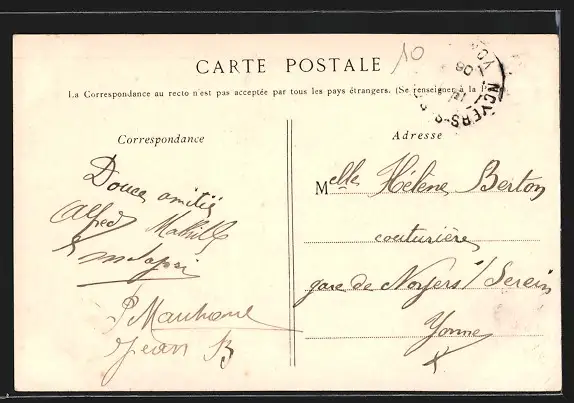 10
CARTE POSTALE
La Correspondance au recto n'est pas acceptée par tous les pays étrangers. (Se renseigner à la
NOYERS-S
08
Correspondance
Douces amitiés
Alfred Mathilde
P Marchand
Jean B
Adresse
Melle Hélène Berton
couturière
gare de Noyers s/ Serein
Yonne